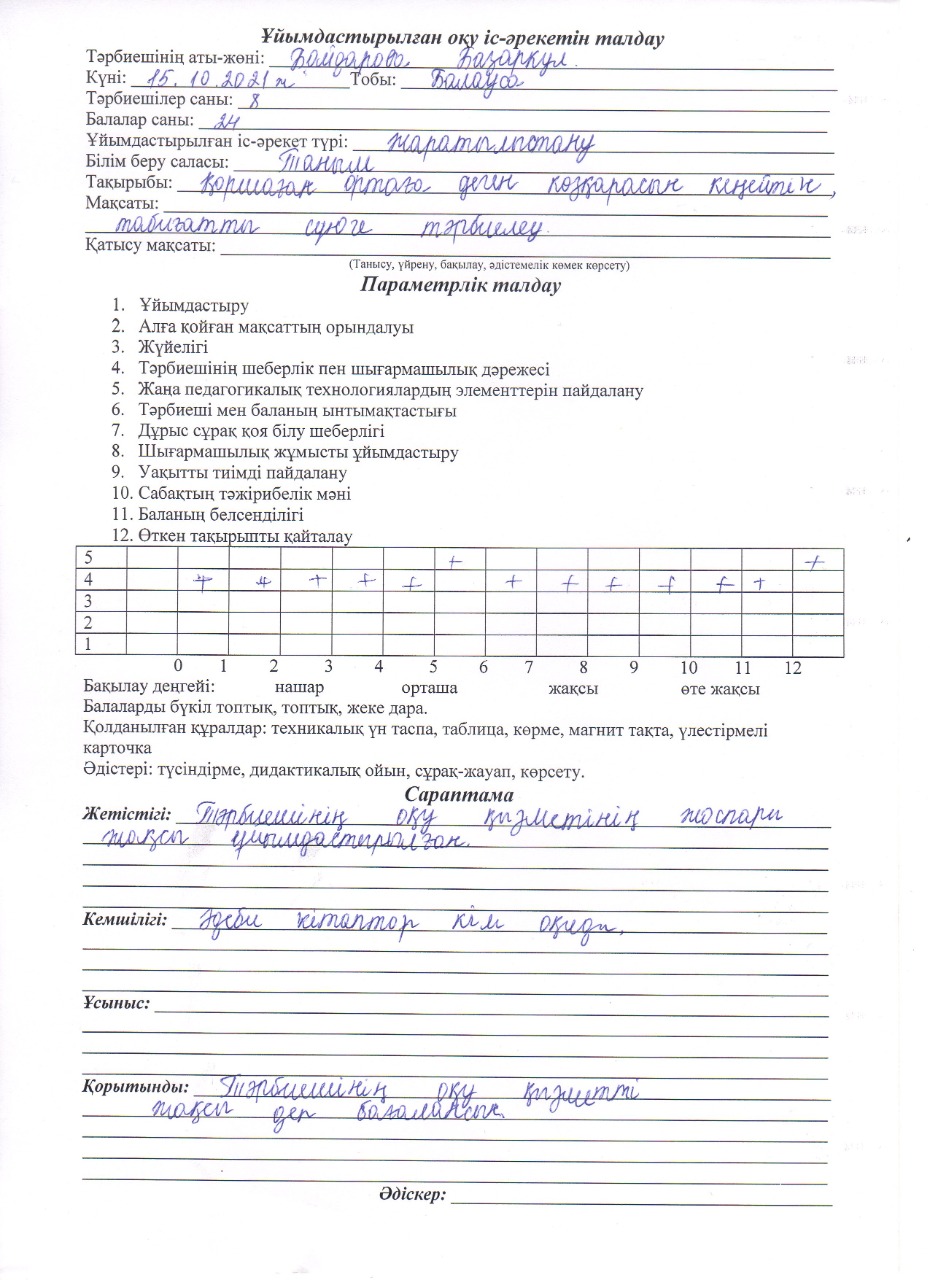 Ұйымдастырылған оқу іс-әрекетін талдау
Тәрбиешінің аты-жөні: Байдарова Базаркул.
Күні: 15.10.2021ж Тобы: Балауса
Тәрбиешілер саны: 8
Балалар саны: 24
Ұйымдастырылған іс-әрекет түрі: жаратылыстану
Білім беру саласы: Таным
Тақырыбы: Қоршаған ортаға деген көзқарасын кеңейтіп,
Мақсаты:
табиғатты сүюге тәрбиелеу.
Қатысу мақсаты:
(Танысу, үйрену, бақылау, әдістемелік көмек көрсету)
Параметрлік талдау
1. Ұйымдастыру
2. Алға қойған мақсаттың орындалуы
3. Жүйелігі
4. Тәрбиешінің шеберлік пен шығармашылық дәрежесі
5. Жаңа педагогикалық технологиялардың элементтерін пайдалану
6. Тәрбиеші мен баланың ынтымақтастығы
7. Дұрыс сұрақ қоя білу шеберлігі
8. Шығармашылық жұмысты ұйымдастыру
9. Уақытты тиімді пайдалану
10. Сабақтың тәжірибелік мәні
11. Баланың белсенділігі
12. Өткен тақырыпты қайталау
5 + +
4 + + + + + + + + + + +
3
2
1
0 1 2 3 4 5 6 7 8 9 10 11 12
Бақылау деңгейі: нашар орташа жақсы өте жақсы
Балаларды бүкіл топтық, топтық, жеке дара.
Қолданылған құралдар: техникалық үн таспа, таблица, көрме, магнит тақта, үлестірмелі
карточка
Әдістері: түсіндірме, дидактикалық ойын, сұрақ-жауап, көрсету.
Сараптама
Жетістігі: Тәрбиешінің оқу қызметінің жоспары
жақсы ұйымдастырылған.
Кемшілігі: Әдеби кітаптор кім оқиди.
Ұсыныс:
Қорытынды: Тәрбиешінің оқу қызметті
жақсы деп
Әдіскер: